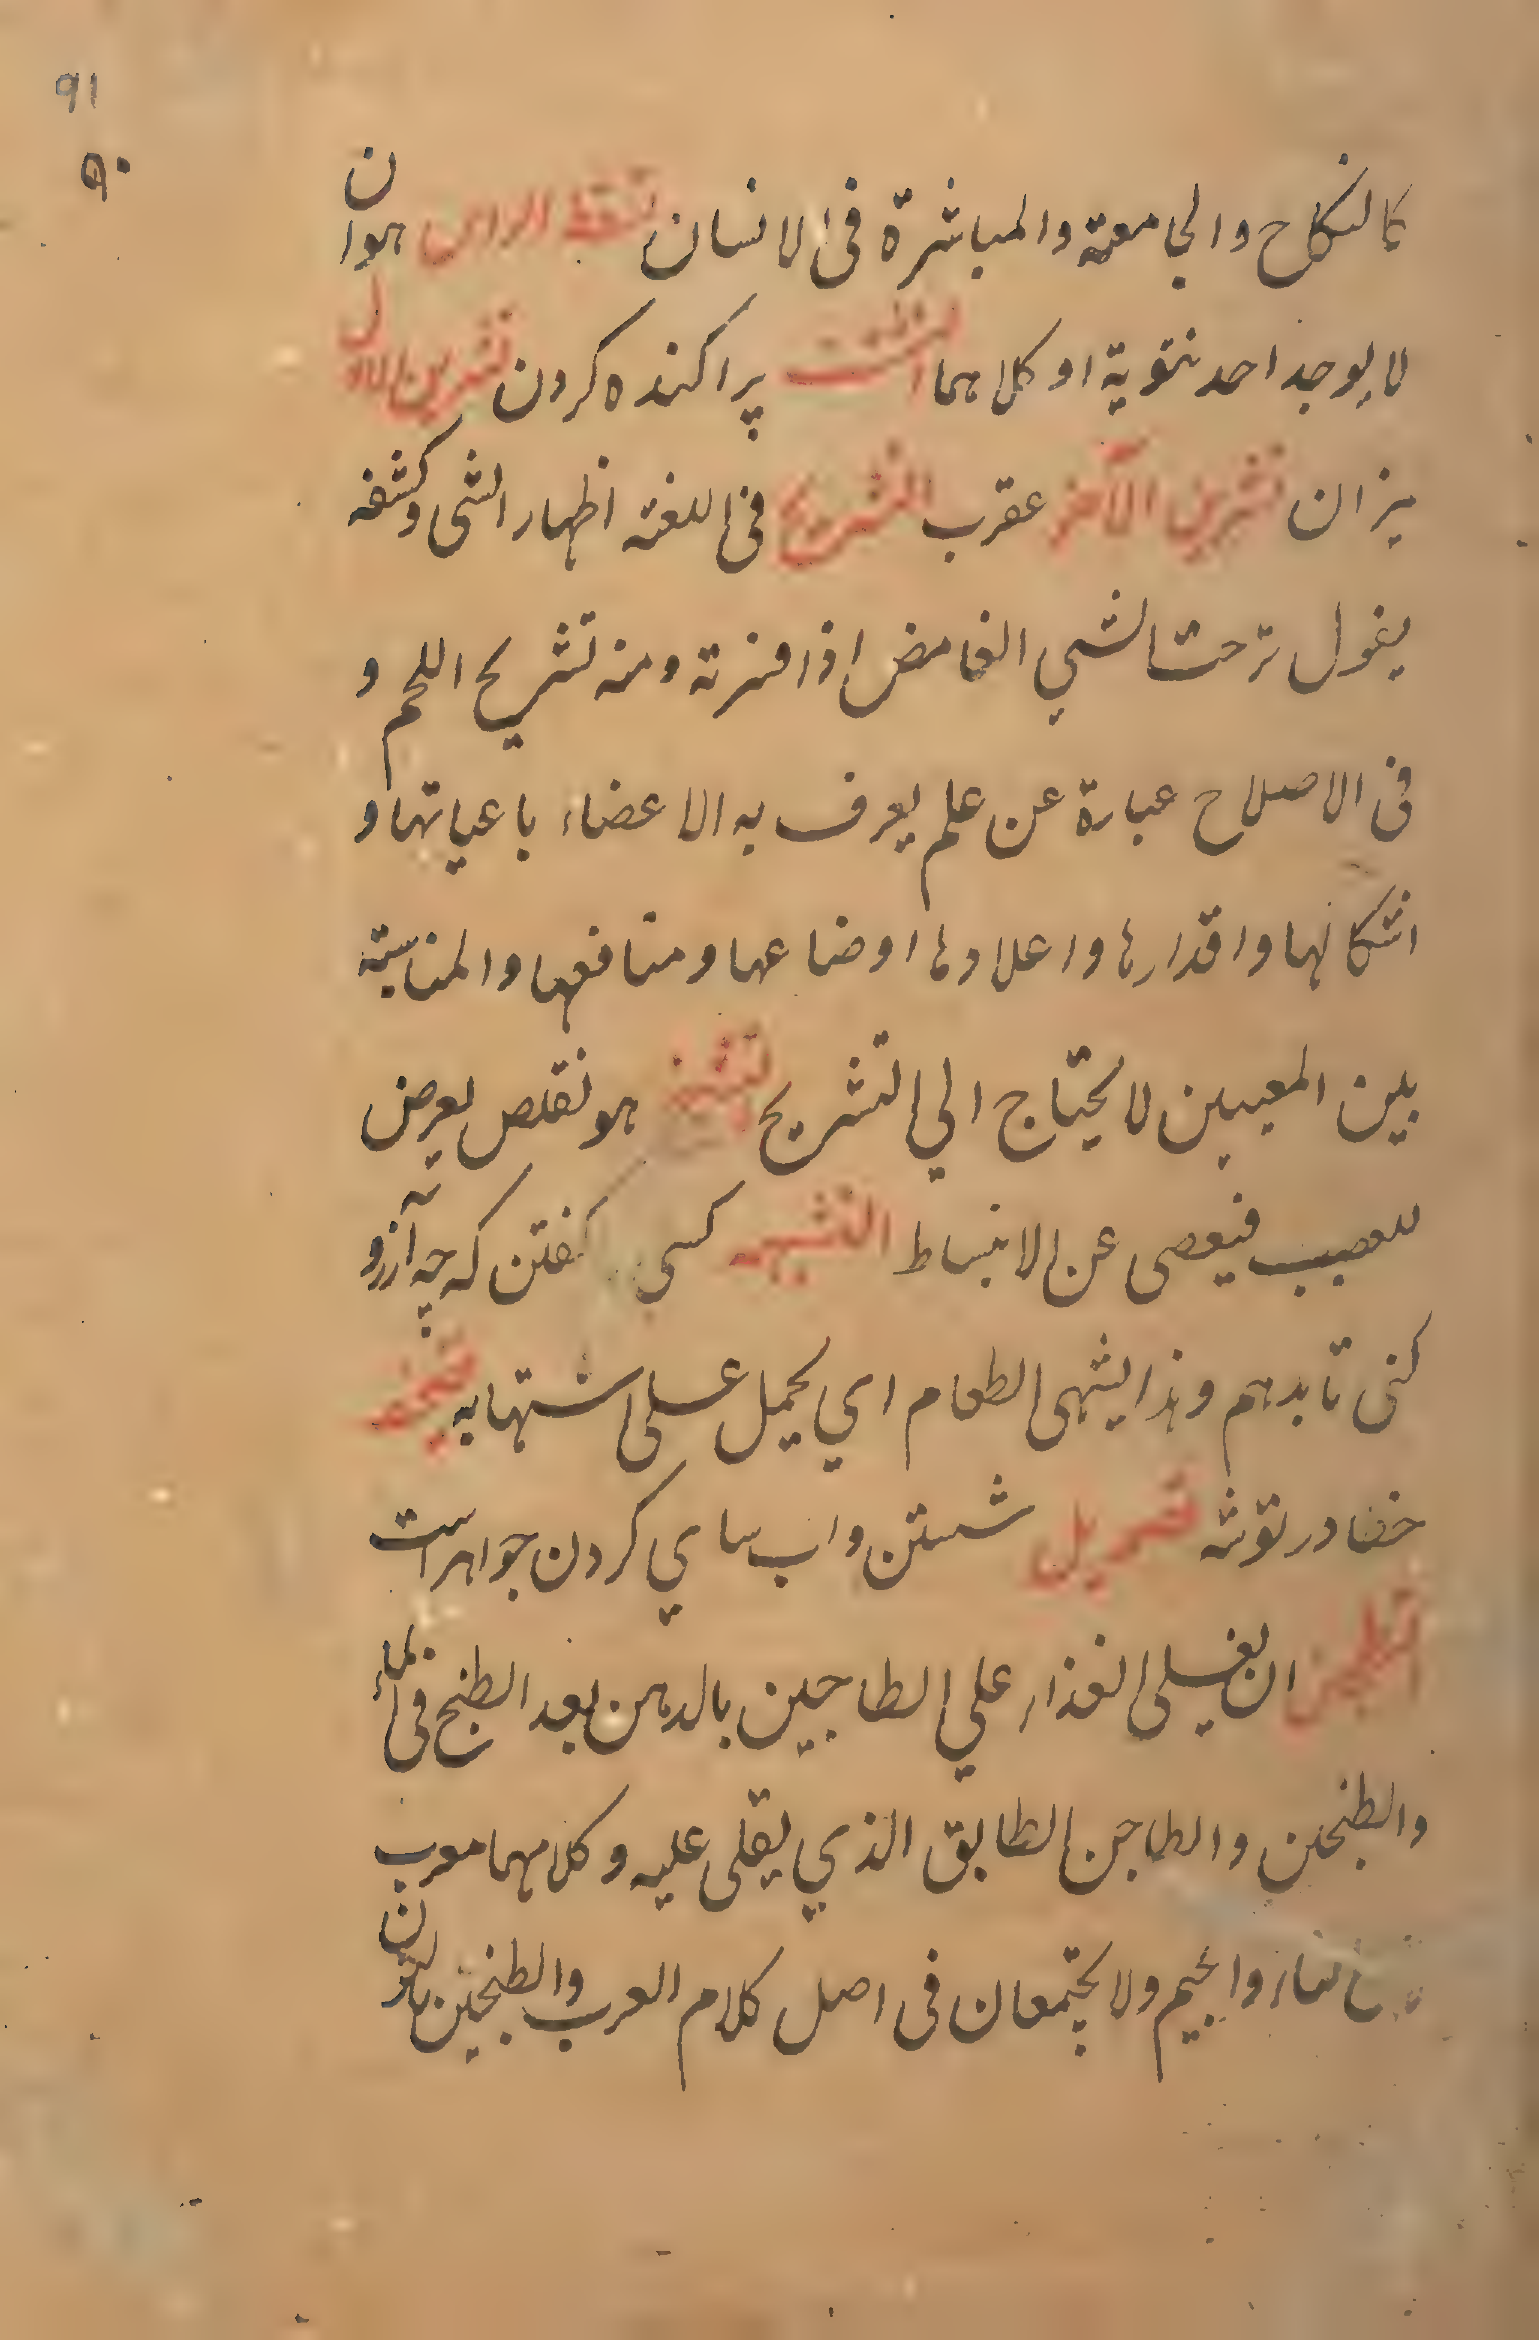 ۹۱
۹۰
كالنكاح والجامعة والمباشرة فى الانسان تسقط الراس هوان
لا يوجد احد نتوية او كلاهما التشتت پراكنده كردن تشرين الاول
ميزان تشرين الآخر عقرب التشريح فى اللغة اظهار الشى وكشفه
يقول شرحت الشي الغامض اذا فسرته ومنه تشريح اللحم و
فى الاصلاح عبارة عن علم يعرف به الاعضاء باعيانها و
اشكالها واقدارها واعدادها اوضاعها ومنافعها والمناسبة
بين المعيبين لا يحتاج الي التشريح تشنج هو تقلص يعرض
للعصب فيعصى عن الانبساط التشهيه كسى گفتن كه چه آرزو
كنى تا بدهم وهذا يشهى الطعام اي يحمل على اشتهايه
خضا در توشه تصويل شستن واب ساي كردن جواهر است
التطجين ان يغلى الغذاء علي الطاجين بالدهن بعد الطبخ فى الماء
والطبخين والطاجن الطابق الذي يقلى عليه وكلامهما معرب
الطاء والجيم ولا يجتمعان فى اصل كلام العرب والطبخين